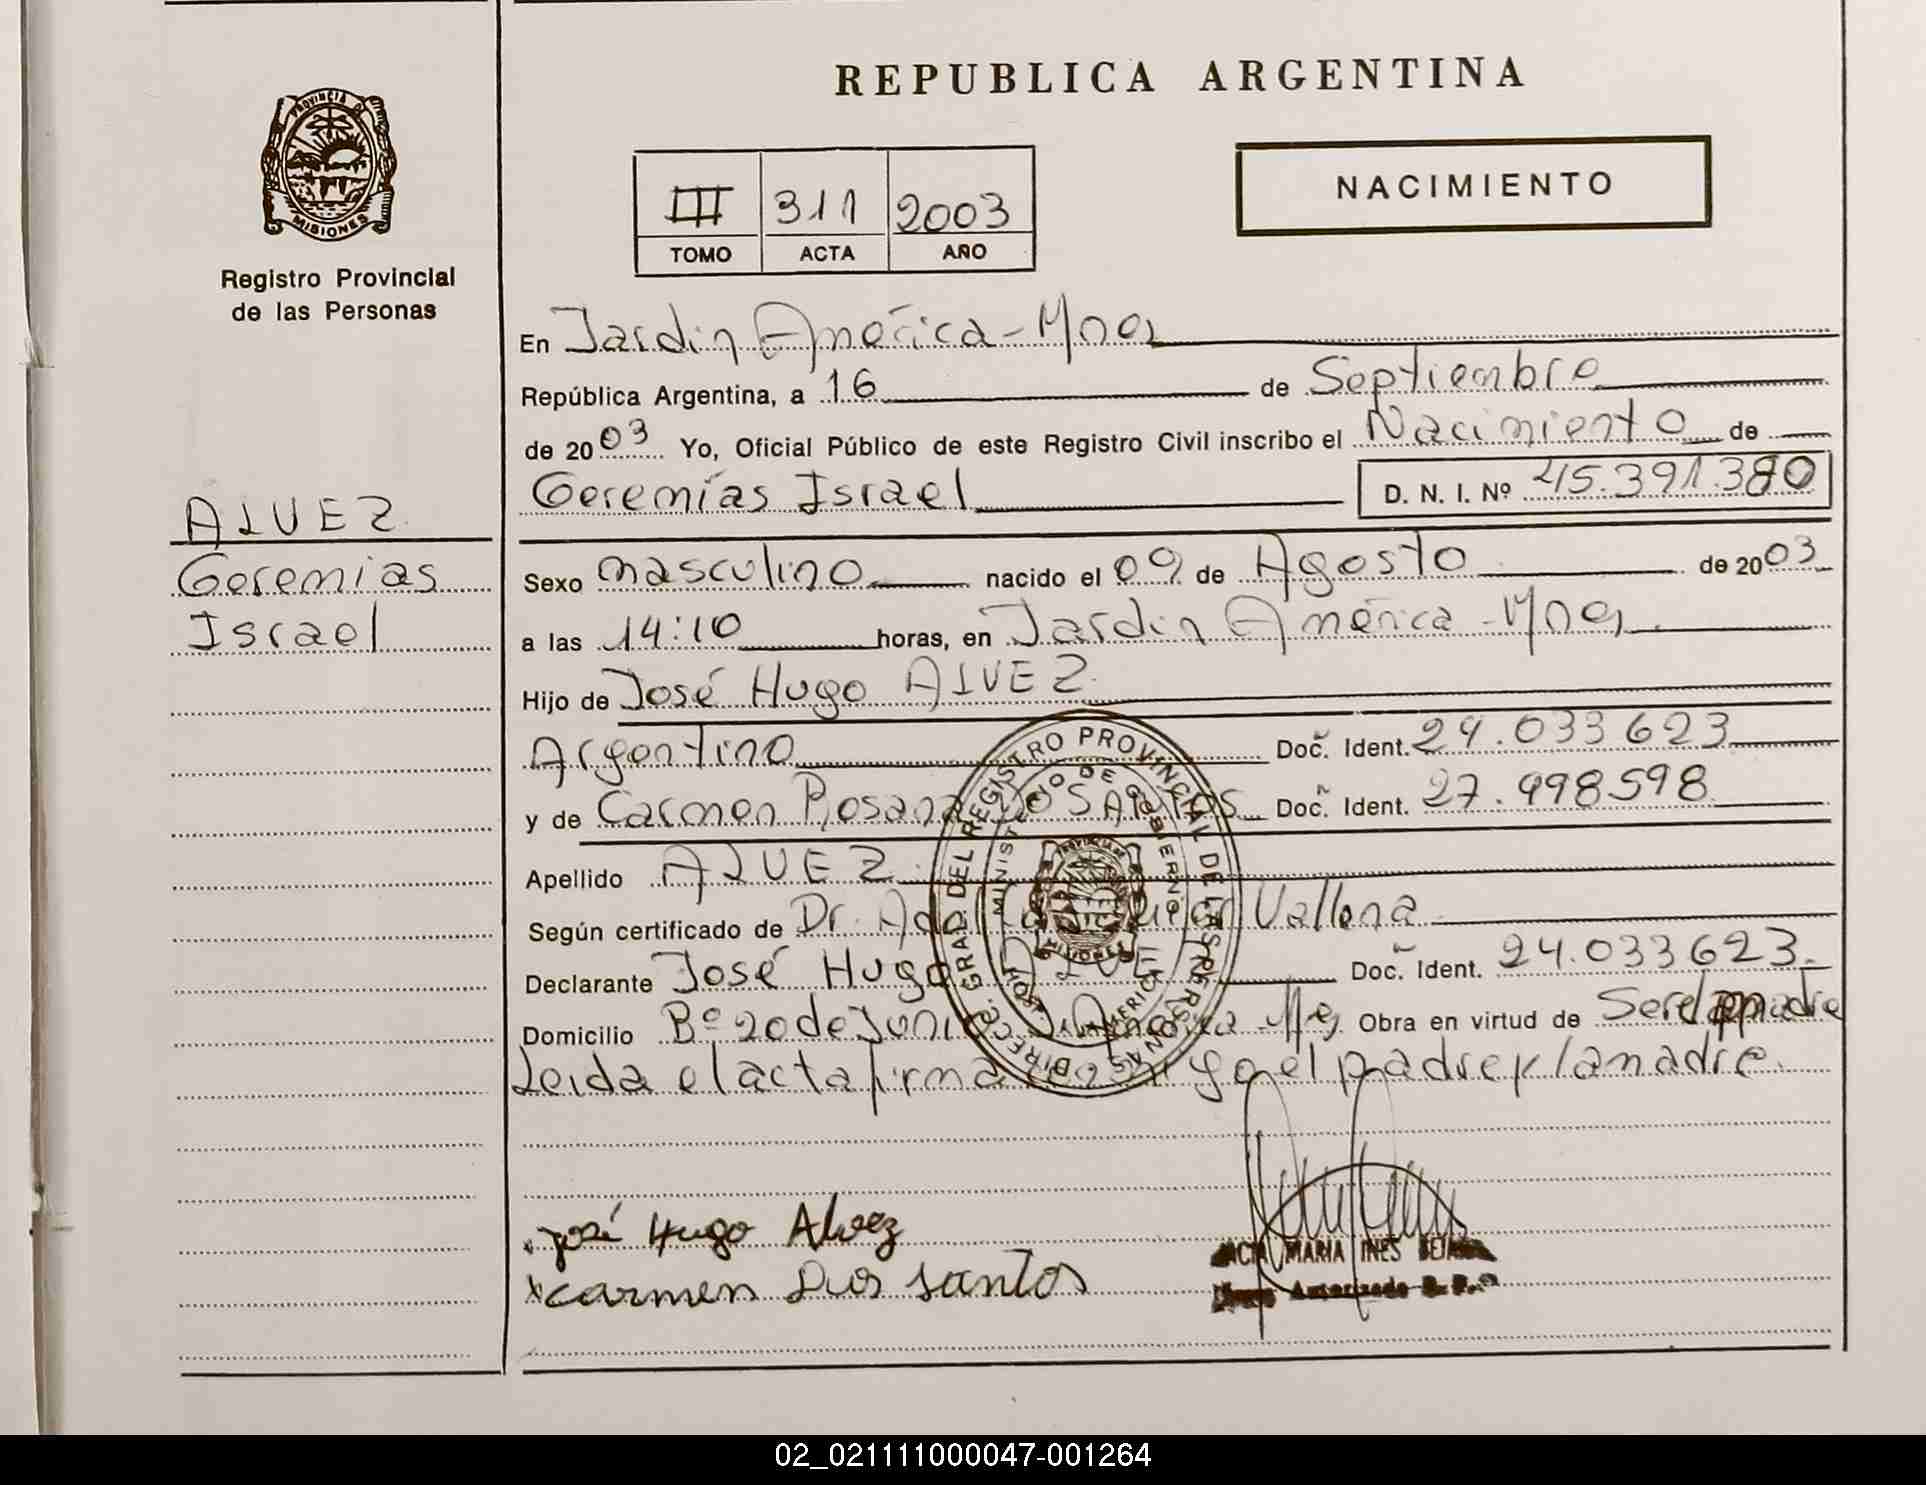 REPUBLICA ARGENTINA
PROVINCIA DE MISIONES
Registro Provincial
de las Personas
III 311 2003
TOMO ACTA AÑO
NACIMIENTO
ALVEZ
Geremias
Israel
En Jardin América - Mnes
República Argentina, a 16 de Septiembre
de 2003 Yo, Oficial Público de este Registro Civil inscribo el Nacimiento de
Geremías Israel D. N. I. Nº 45.391.380
Sexo masculino nacido el 09 de Agosto de 2003
a las 14:10 horas, en Jardin América - Mnes
Hijo de José Hugo ALVEZ
Argentino Doc. Ident. 24.033623
y de Carmen Rosana DO SANTOS Doc. Ident. 27.998598
Apellido ALVEZ
Según certificado de Dr. Vallena
Declarante José Hugo Doc. Ident. 24.033623.
Domicilio Bº 20 de Junio Obra en virtud de Ser el padre
Leida el acta firma el padre y la madre.
DIRECC. GRAD. DEL REGISTRO PROVINCIAL DE LAS PERSONAS
MINISTERIO DE GOBIERNO
José Hugo Alvez
x carmen Dos santos
MARIA INES
Autorizado
02_021111000047-001264